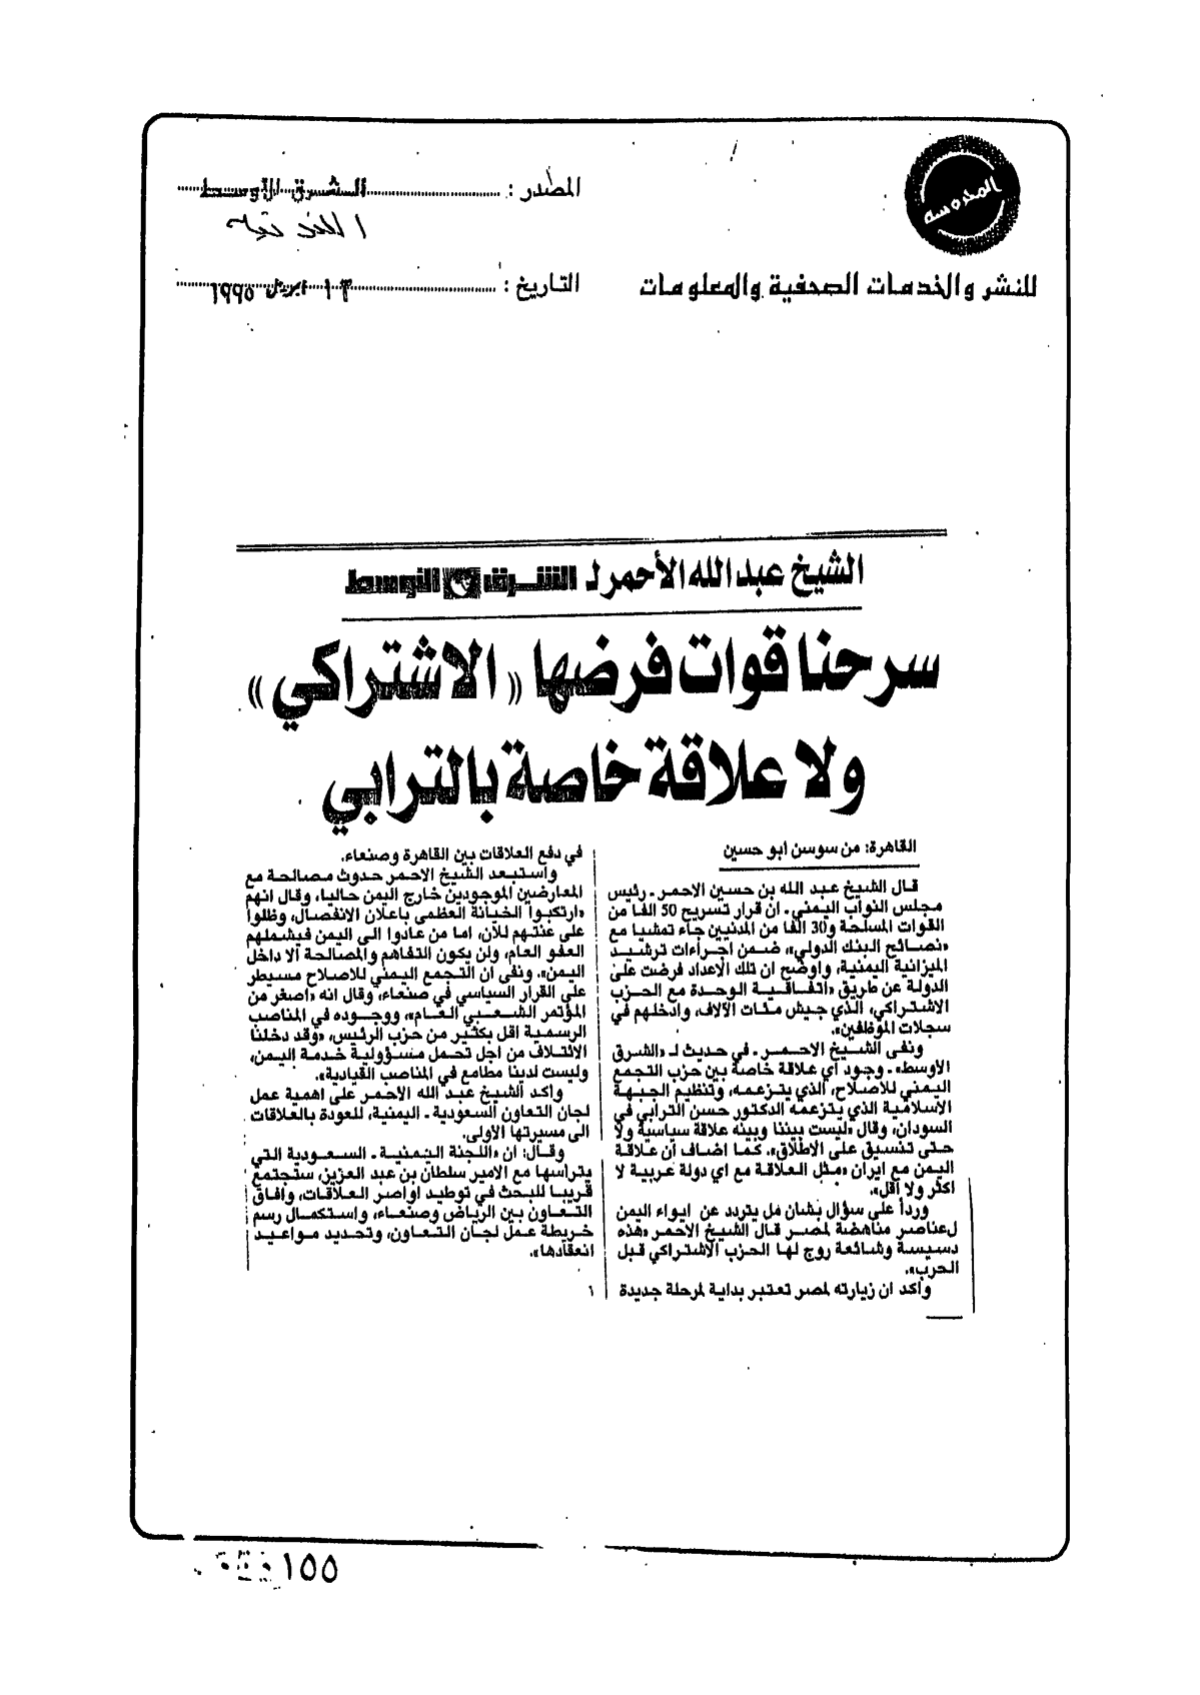 المحروسة
للنشر والخدمات الصحفية والمعلومات
المصدر : الشرق الأوسط
التاريخ : ابريل ١٩٩٥
الشيخ عبد الله الأحمر لـ الشرق الأوسط
سرحنا قوات فرضها «الاشتراكي»
ولا علاقة خاصة بالترابي
القاهرة: من سوسن ابو حسين
قال الشيخ عبد الله بن حسين الاحمر ـ رئيس
مجلس النواب اليمني ـ ان قرار تسريح 50 الفا من
القوات المسلحة و30 الفا من المدنيين جاء تمشيا مع
«نصائح البنك الدولي»، ضمن اجراءات ترشيد
الميزانية اليمنية، واوضح ان تلك الاعداد فرضت على
الدولة عن طريق «اتفاقية الوحدة مع الحزب
الاشتراكي، الذي جيش مئات الآلاف، وادخلهم في
سجلات الموظفين».
ونفى الشيخ الاحمر ـ في حديث لـ «الشرق
الاوسط» ـ وجود اي علاقة خاصة بين حزب التجمع
اليمني للاصلاح، الذي يتزعمه، وتنظيم الجبهة
الاسلامية الذي يتزعمه الدكتور حسن الترابي في
السودان، وقال «ليست بيننا وبينه علاقة سياسية ولا
حتى تنسيق على الاطلاق». كما اضاف ان علاقة
اليمن مع ايران «مثل العلاقة مع اي دولة عربية لا
اكثر ولا اقل».
وردا على سؤال بشان مل يتردد عن ايواء اليمن
لعناصر مناهضة لمصر قال الشيخ الاحمر «هذه
دسيسة وشائعة روج لها الحزب الاشتراكي قبل
الحرب».
واكد ان زيارته لمصر تعتبر بداية لمرحلة جديدة
في دفع العلاقات بين القاهرة وصنعاء.
واستبعد الشيخ الاحمر حدوث مصالحة مع
المعارضين الموجودين خارج اليمن حاليا، وقال انهم
«ارتكبوا الخيانة العظمى باعلان الانفصال، وظلوا
على عنتهم للآن، اما من عادوا الى اليمن فيشملهم
العفو العام، ولن يكون التفاهم والمصالحة الا داخل
اليمن». ونفى ان التجمع اليمني للاصلاح مسيطر
على القرار السياسي في صنعاء، وقال انه «اصغر من
المؤتمر الشعبي العام»، ووجوده في المناصب
الرسمية اقل بكثير من حزب الرئيس، «وقد دخلنا
الائتلاف من اجل تحمل مسؤولية خدمة اليمن،
وليست لدينا مطامع في المناصب القيادية».
واكد الشيخ عبد الله الاحمر على اهمية عمل
لجان التعاون السعودية ـ اليمنية، للعودة بالعلاقات
الى مسيرتها الأولى.
وقال: ان «اللجنة اليمنية ـ السعودية التي
يتراسها مع الامير سلطان بن عبد العزيز، ستجتمع
قريبا للبحث في توطيد اواصر العلاقات، وآفاق
التعاون بين الرياض وصنعاء، واستكمال رسم
خريطة عمل لجان التعاون، وتحديد مواعيد
انعقادها».
١
١٥٥